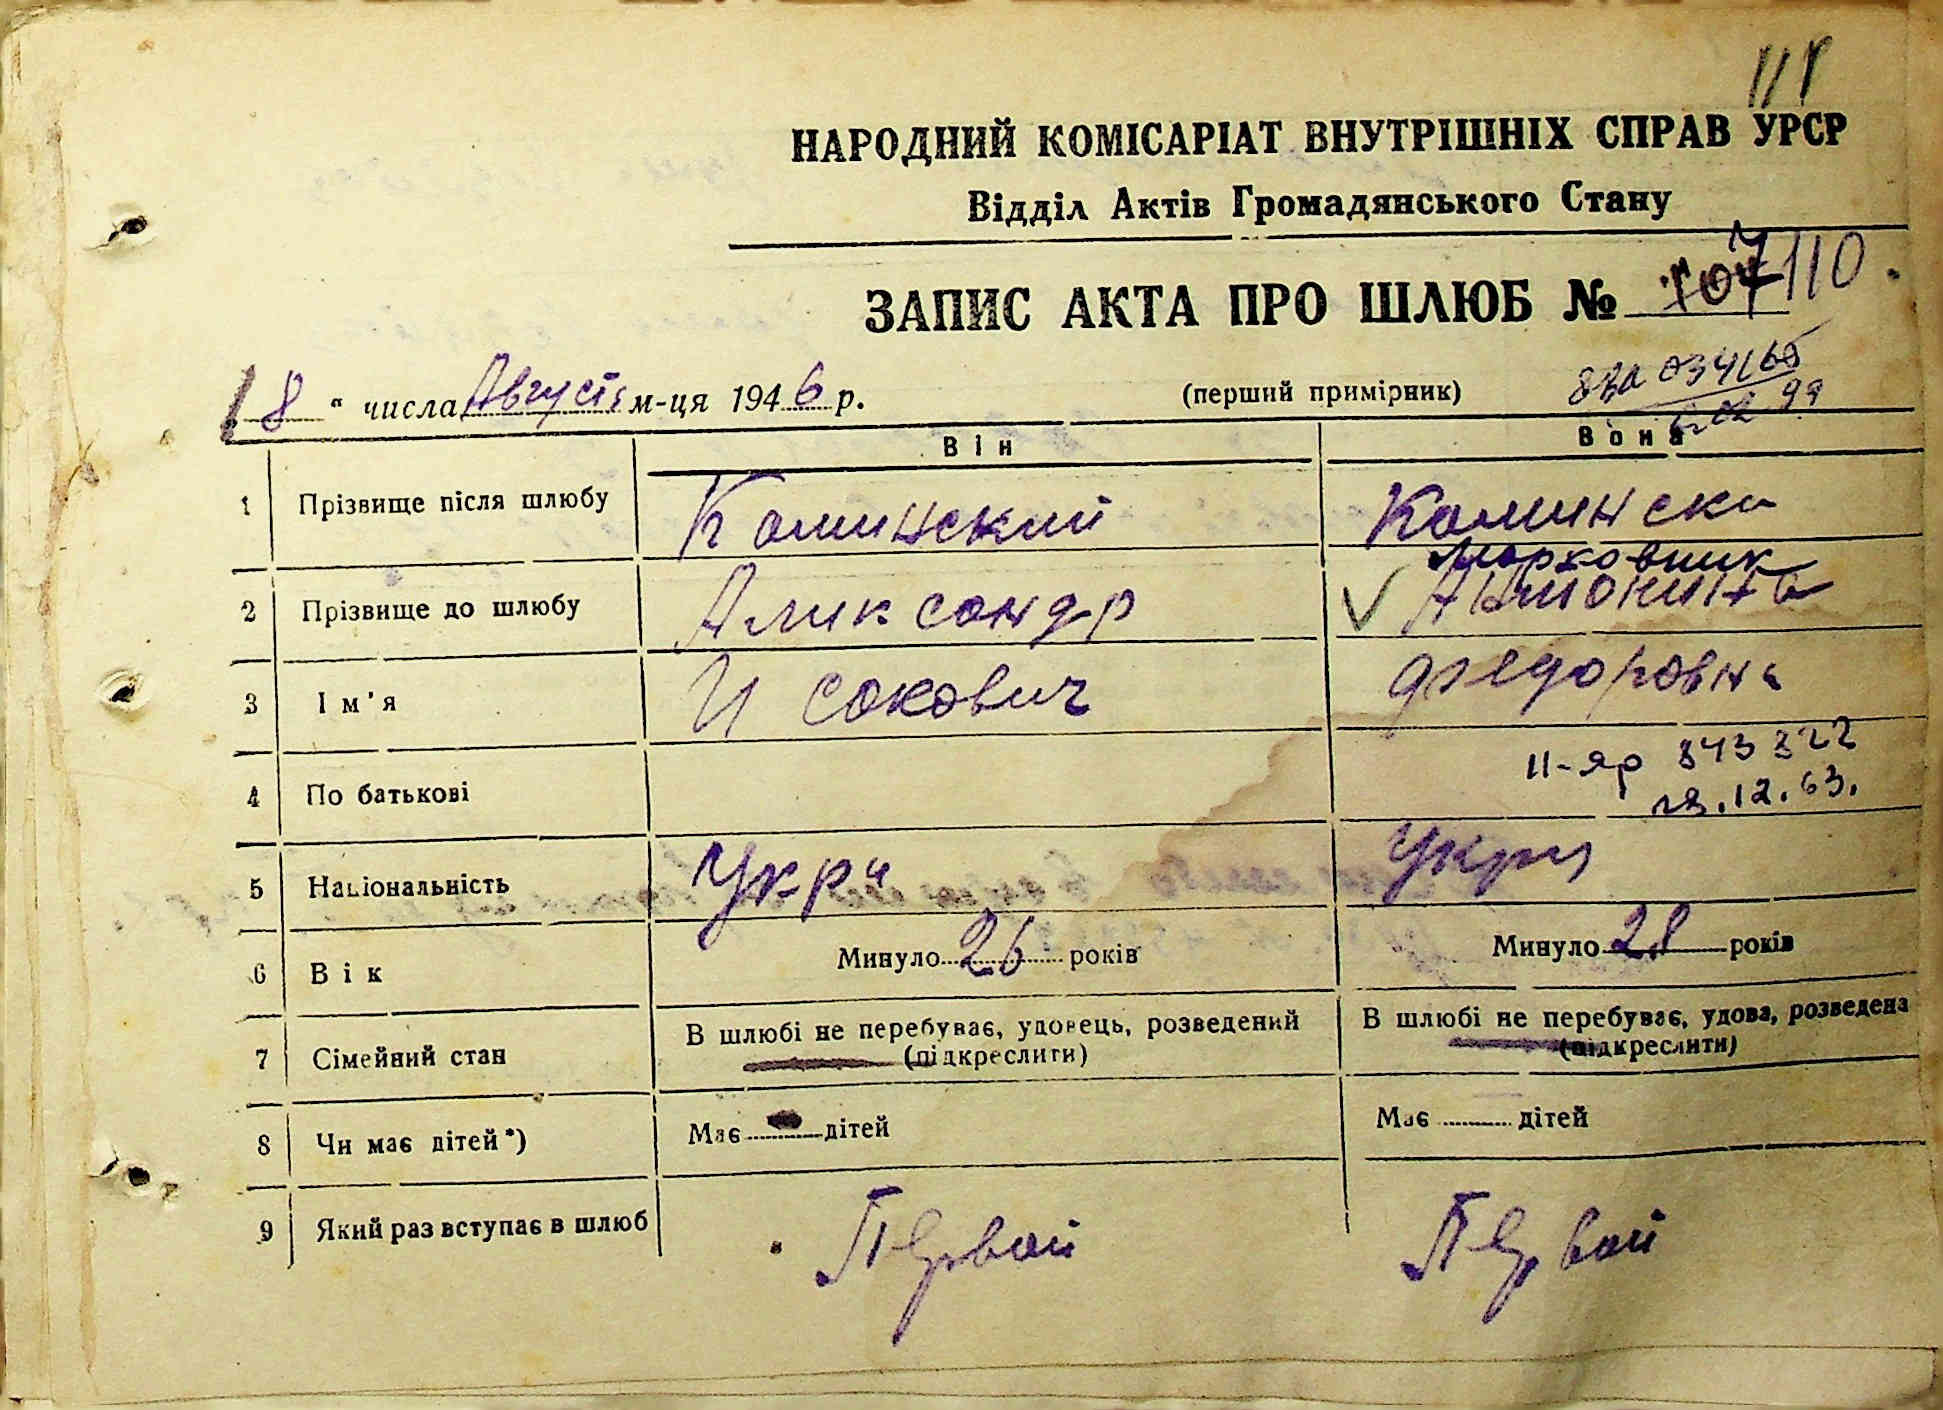 111
НАРОДНИЙ КОМІСАРІАТ ВНУТРІШНІХ СПРАВ УРСР
Відділ Актів Громадянського Стану
ЗАПИС АКТА ПРО ШЛЮБ № 107 110.
8 " числа Августа м-ця 1946 р. (перший примірник)
Він Вона
1 Прізвище після шлюбу Каминский Каминска
Марковник
2 Прізвище до шлюбу Аликсандр Антонина
3 Ім'я Исакович Федоровна
II-яр 843822
4 По батькові 28.12.63.
5 Національність Укр Укр
6 Вік Минуло 26 років Минуло 28 років
7 Сімейний стан В шлюбі не перебуває, удовець, розведений В шлюбі не перебуває, удова, розведена
(підкреслити) (підкреслити)
8 Чи має дітей*) Має дітей Має дітей
9 Який раз вступає в шлюб Первой Первой